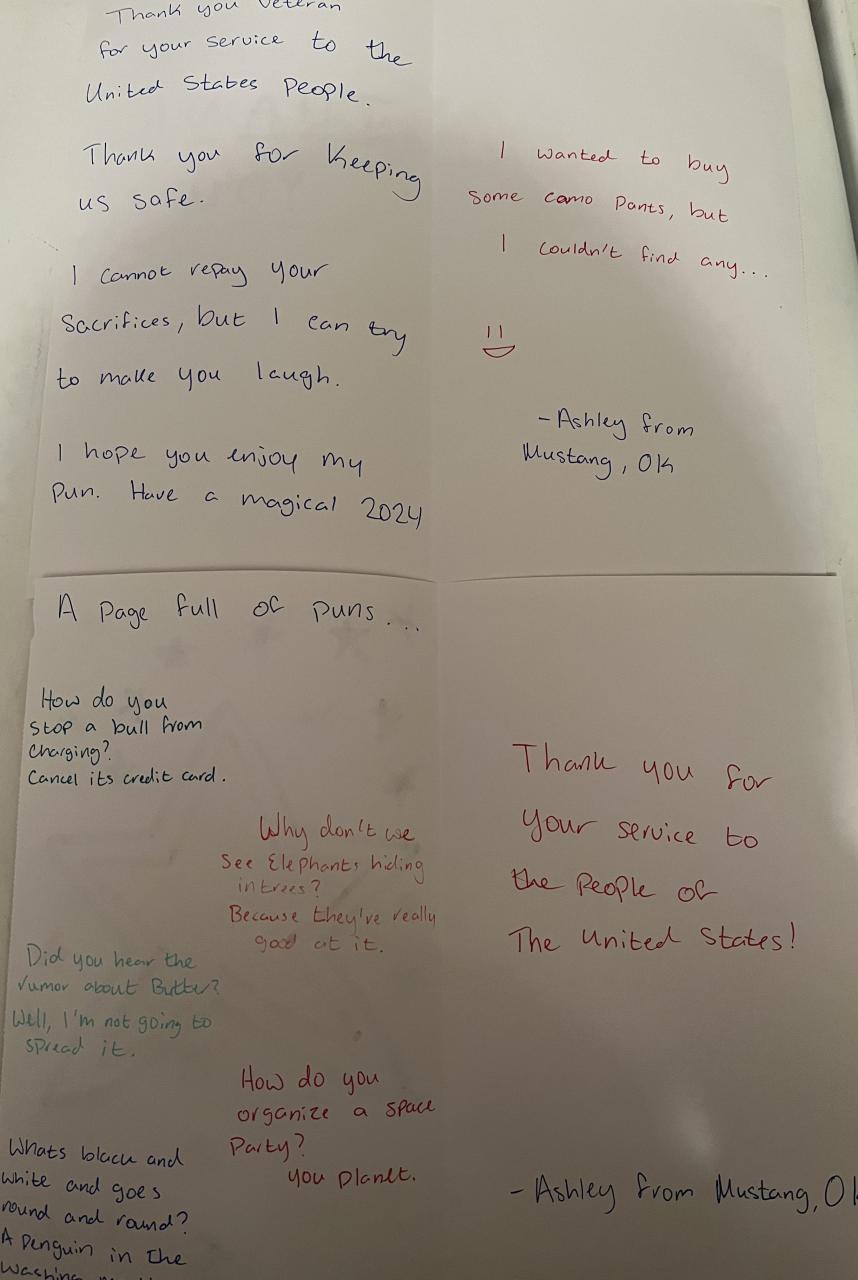 Thank you Veteran
for your service to the
United States People.
Thank you for keeping
us safe.
I cannot repay your
Sacrifices, but I can try
to make you laugh.
I hope you enjoy my
pun. Have a magical 2024
I wanted to buy
some camo pants, but
I couldn't find any...
- Ashley from
Mustang, OK
A page full of puns...
How do you
stop a bull from
charging?
Cancel its credit card.
Why don't we
see Elephants hiding
in trees?
Because they've really
good at it.
Did you hear the
rumor about Butter?
Well, I'm not going to
spread it.
How do you
organize a space
Party?
you planet.
Whats black and
white and goes
round and round?
A Penguin in the
Thank you for
your service to
the people of
The United States!
- Ashley from Mustang, O